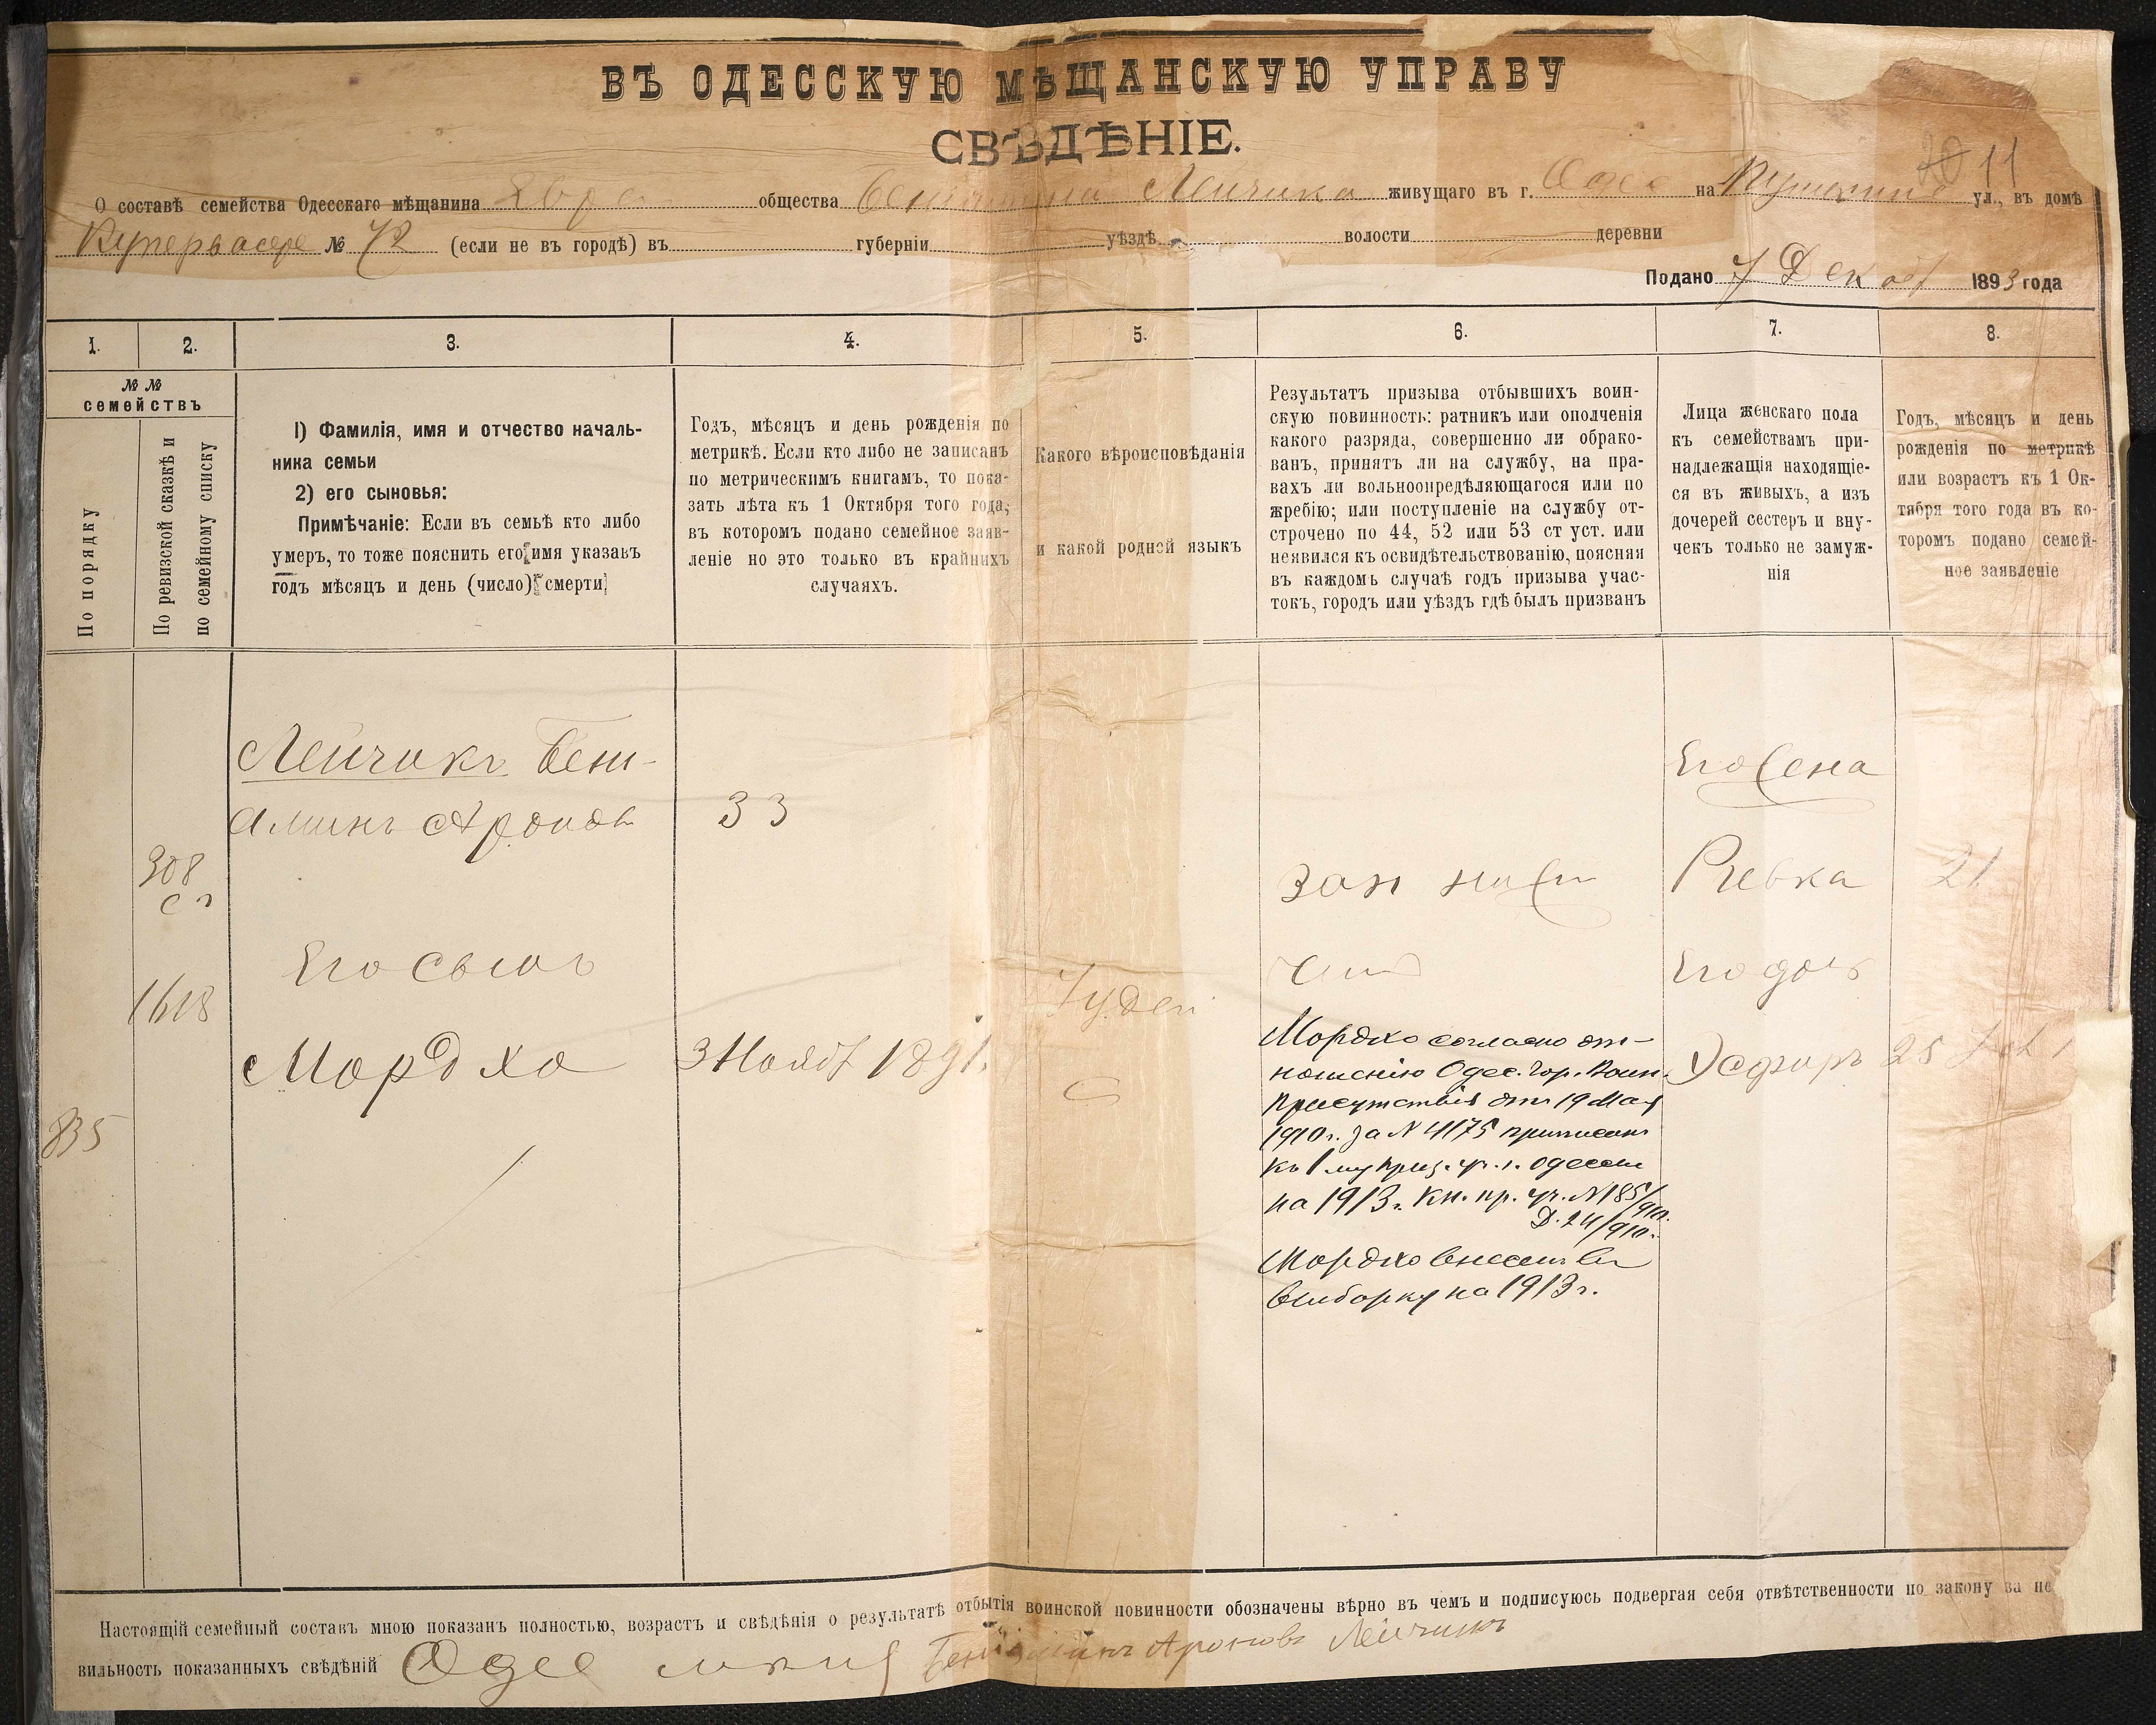 ВЪ ОДЕССКУЮ МѢЩАНСКУЮ УПРАВУ
СВѢДѢНІЕ.
20 11
О составѣ семейства Одесскаго мѣщанина Евре общества Беніамина Лейчика живущаго въ г. Одес на Пушкинс ул., въ домѣ
№ 72 (если не въ городѣ) въ губерніи уѣздѣ волости деревни
Подано 7 Декаб 1893 года
1. 2. 3. 4. 5. 6. 7. 8.
№ №
семействъ
По порядку
По ревизской сказкѣ и
по семейному списку
1) Фамилія, имя и отчество началь-
ника семьи
2) его сыновья:
Примѣчаніе: Если въ семьѣ кто либо
умеръ, то тоже пояснить его имя указавъ
годъ мѣсяцъ и день (число) смерти
Годъ, мѣсяцъ и день рожденія по
метрикѣ. Если кто либо не записанъ
по метрическимъ книгамъ, то пока-
зать лѣта къ 1 Октября того года,
въ которомъ подано семейное заяв-
леніе но это только въ крайнихъ
случаяхъ.
Какого вѣроисповѣданія
и какой родной языкъ
Результатъ призыва отбывшихъ воин-
скую повинность: ратникъ или ополченія
какого разряда, совершенно ли обрако-
ванъ, принятъ ли на службу, на пра-
вахъ ли вольноопредѣляющагося или по
жребію; или поступленіе на службу от-
строчено по 44, 52 или 53 ст уст. или
неявился къ освидѣтельствованію, поясняя
въ каждомъ случаѣ годъ призыва учас-
токъ, городъ или уѣздъ гдѣ былъ призванъ
Лица женскаго пола
къ семействамъ при-
надлежащія находящіе-
ся въ живыхъ, а изъ
дочерей сестеръ и вну-
чекъ только не замуж-
нія
Годъ, мѣсяцъ и день
рожденія по метрикѣ
или возрастъ къ 1 Ок-
тября того года въ ко-
торомъ подано семей-
ное заявленіе
835
308
1618
Лейчикъ Бені-
аминъ Аронов
Его сынъ
Мордхо
33
3 Нояб 1891.
Іудей
Мордко согласно от-
ношенію Одес. Гор. Воин.
Присутствія отъ 19 Мая
1910 г. за № 4175 приписанъ
къ 1 му приз. уч. г. Одессы
на 1913 г. Кн. пр. уч. № 185/910.
Д. 24/910.
Мордко внесенъ въ
выборку на 1913 г.
Его жена
Ривка
Его дочь
Эсфирь
21
25
Настоящій семейный составъ мною показанъ полностью, возрастъ и свѣдѣнія о результатѣ отбытія воинской повинности обозначены вѣрно въ чемъ и подписуюсь подвергая себя отвѣтственности по закону за не
вильность показанныхъ свѣдѣній Одес Беніаминъ Ароновъ Лейчикъ